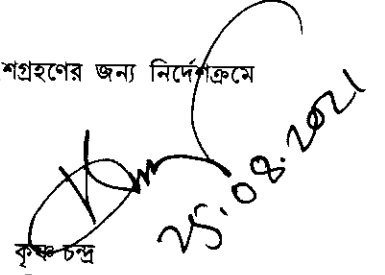 শগ্রহণের জন্য নির্দেশক্রমে
25.08.2021
কৃষ্ণ চন্দ্র